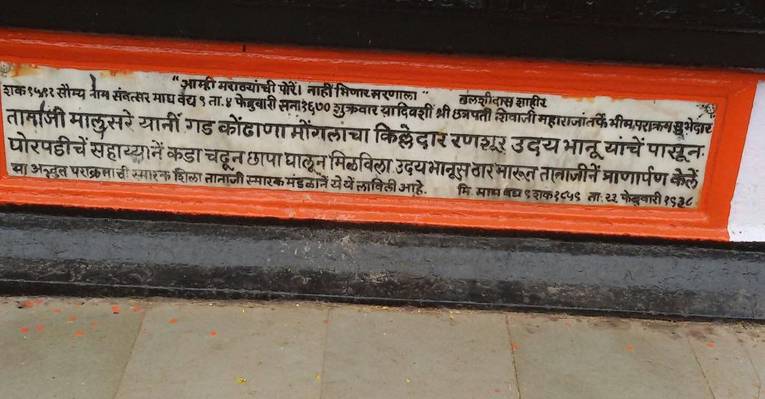 "आम्ही मराठ्यांची पोरें। नाहीं भिणार मरणाला" तुलशीदास शाहीर
शक १५९१ सौम्य नाम संवत्सर माघ वद्य ९ ता. ४ फेब्रुवारी सन १६७० शुक्रवार यादिवशी श्री छत्रपती शिवाजी महाराजांतर्फे भीमपराक्रम सुभेदार
तानाजी मालुसरे यानीं गड कोंढाणा मोंगलाचा किल्लेदार रणशूर उदयभानू यांचें पासून,
घोरपडीचें सहाय्यानें कडा चढून छापा घालून मिळविला. उदयभानूस ठार मारून तानाजीनें प्राणार्पण केलें
या अद्भुत पराक्रमाची स्मारक शिला तानाजी स्मारक मंडळानें येथें लाविली आहे. मि. माघ वद्य ९ शक १८५९ ता. २२ फेब्रुवारी १९३८